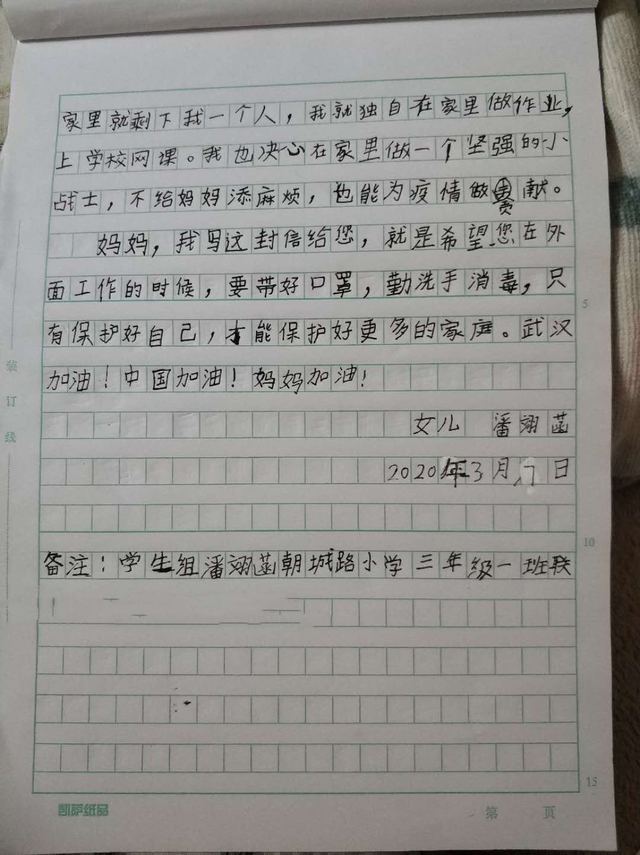 家里就剩下我一个人，我就独自在家里做作业，
上学校网课。我也决心在家里做一个坚强的小
战士，不给妈妈添麻烦，也能为疫情做贡献。
妈妈，我写这封信给您，就是希望您在外
面工作的时候，要带好口罩，勤洗手消毒，只
有保护好自己，才能保护好更多的家庭。武汉
加油！中国加油！妈妈加油！
女儿 潘翊菡
2020年3月7日
备注：学生组潘翊菡朝城路小学三年级一班联
装订线
5
10
15
凯萨纸品
第 页